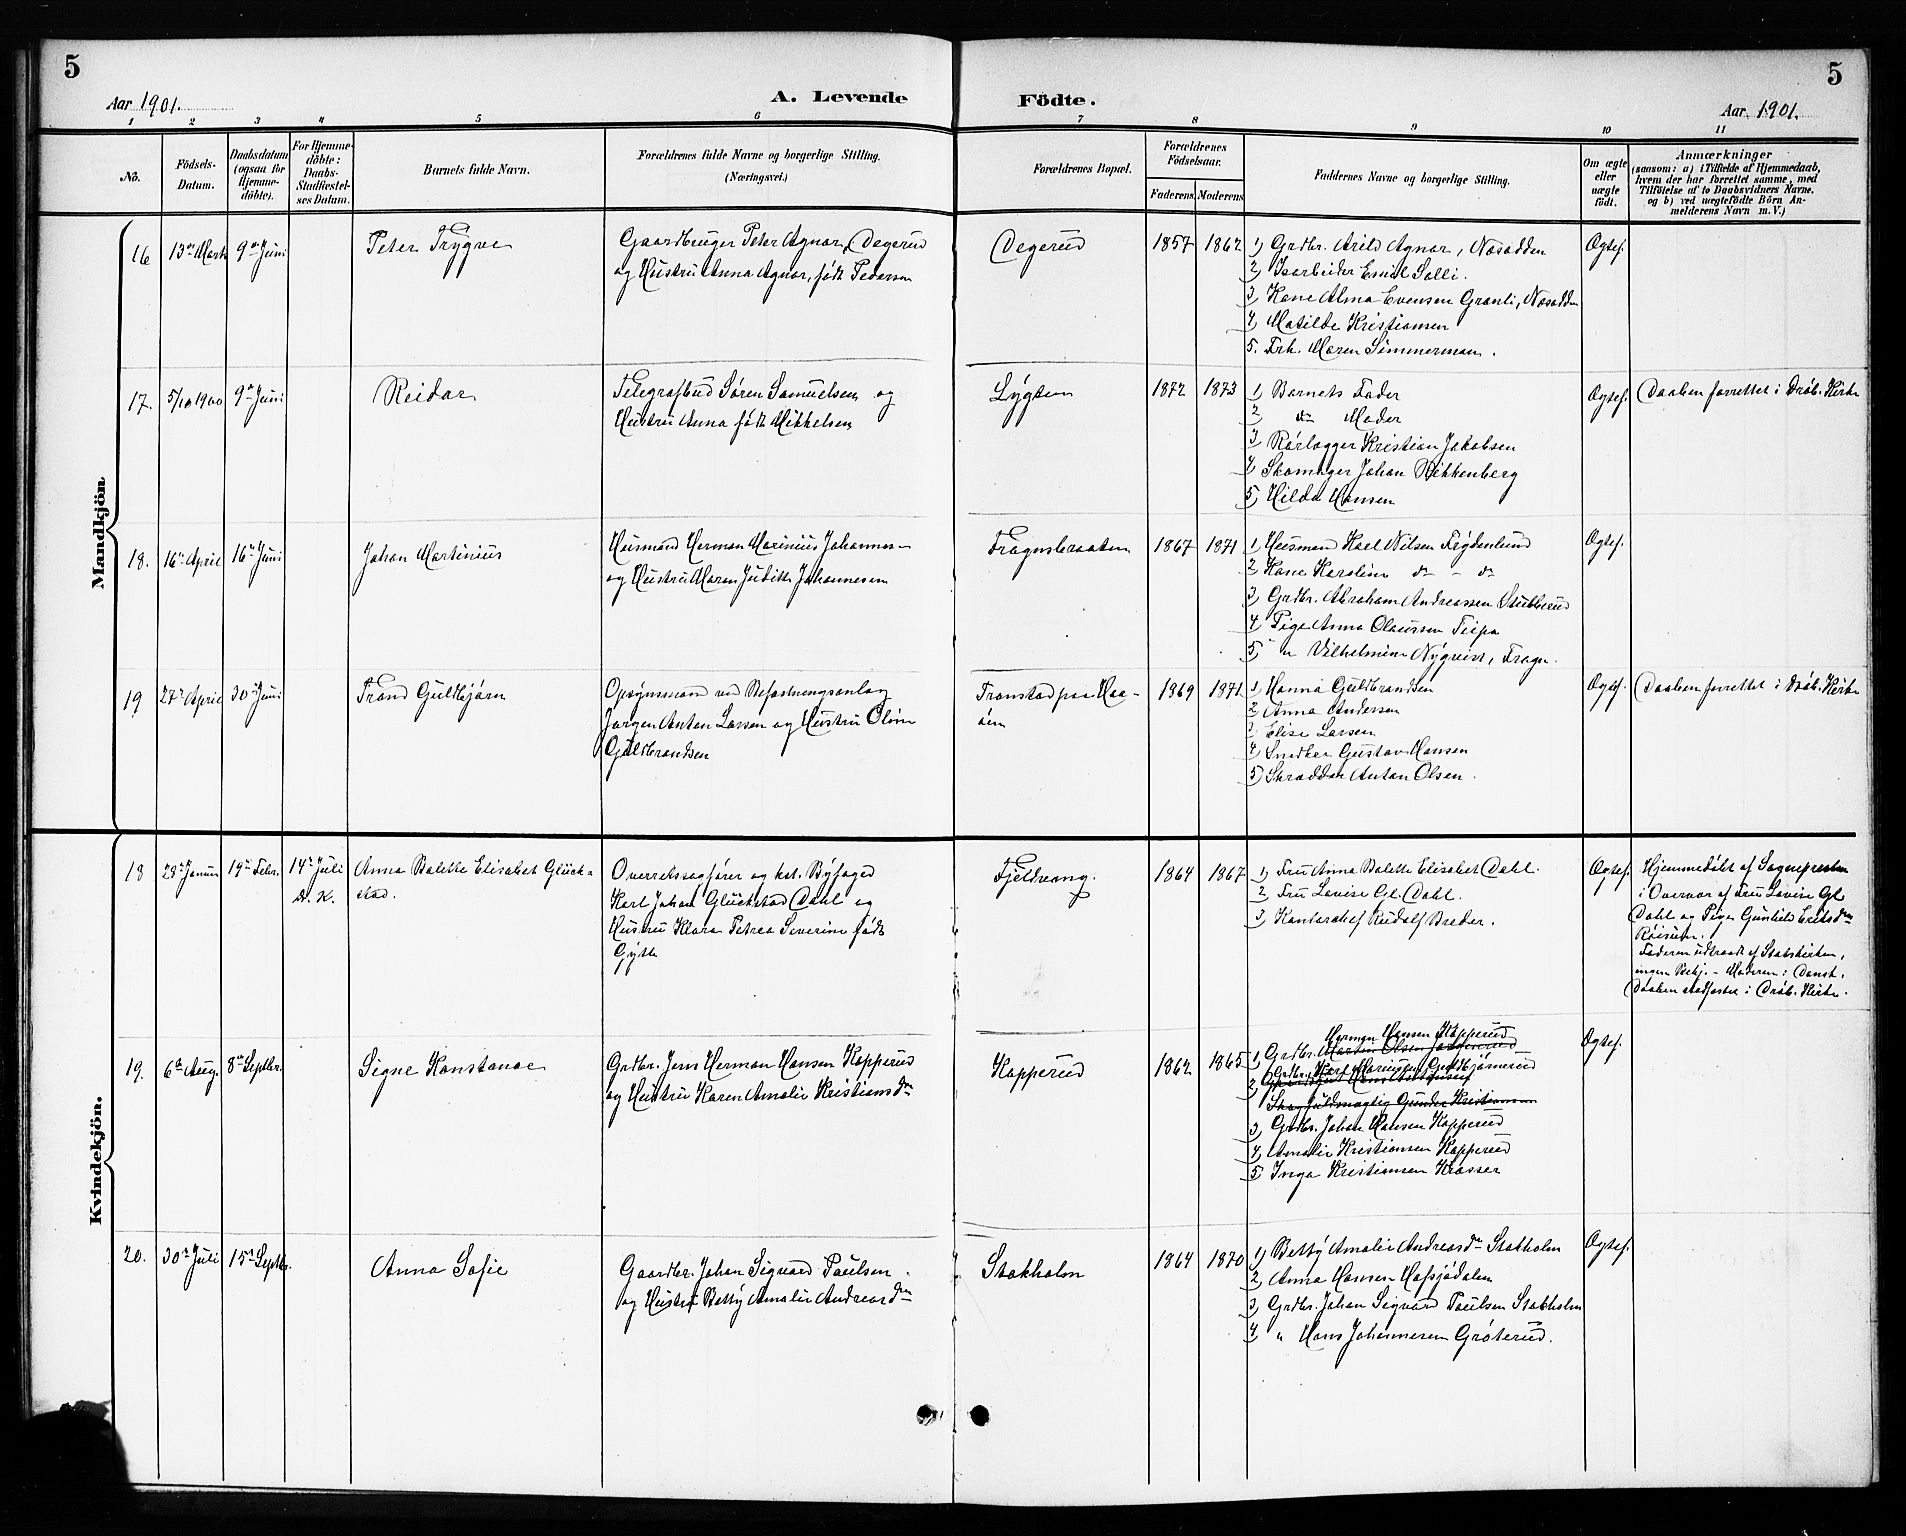 5
5
Aar 1901.
A. Levende
Födte.
Aar 1901.
1 2 3 4 5 6 7 8 9 10 11
No.
Födsels-
Datum.
Daabsdatum
(ogsaa for
Hjemme-
döbte).
For Hjemme-
döbte:
Daabs-
Stadfæstel-
ses Datum.
Barnets fulde Navn.
Forældrenes fulde Navne og borgerlige Stilling.
(Næringsvei.)
Forældrenes Bopæl.
Forældrenes
Födselsaar.
Faderens.
Moderens
Faddernes Navne og borgerlige Stilling.
Om ægte
eller
uægte
födt.
Anmærkninger
(saasom: a) i Tilfælde af Hjemmedaab,
hvem der har forrettet samme, med
Tilföielse af to Daabsvidners Navne,
og b) ved uægtefödte Börn An-
melderens Navn m. V.)
Mandkjön
16
13de Marts
9de Juni
Peter Trygve
Gaardbruger Peter Agnar, Degerud
og Hustru Anna Agnar, født Pedersen
Degerud
1857
1862
1) Grdbr. Arild Agnar, Næsodden
2) Isarbeider Emil Solli.
3) Kone Alma Evensen Granli, Næsodden
4) Matilde Kristiansen
5. Frk. Maren Simmerman.
Ægtef.
17.
5/10 1900
9de Juni
Reidar
Telegrafbud Søren Samuelsen og
Hustru Anna født Mikkelsen
Lygten
1872
1873
1) Barnets Fader
2) do Moder
3) Rørlægger Kristian Jakobsen
4) Skomager Johan Rikkenberg
5) Hilda Hansen
Ægtef.
Daaben forrettet i Drøb. Kirke
18.
16de April
16de Juni
Johan Martinius
Husmand Herman Marinius Johannes-
og Hustru Maren Judith Johannesen
Fragnsbraaten
1867
1871
1) Husman Karl Nilsen Frydenlund
2) Kone Karoline do - do
3) Grdbr. Abraham Andreassen Stubberud
4) Pige Anna Olaussen Teipa
5) " Vilhelmine Nyqvist, Fragn.
Ægtef.
19
27de April
30de Juni
Trond Guldbjørn
Opsynsmand ved Befæstningsanlæg
Jørgen Anton Larsen og Hustru Oline
Guldbrandsen
Tronstad paa Haa-
øen
1869
1871
1) Hanna Guldbrandsen
2) Anna Andersen
3) Elise Larsen
4) Snedker Gustav Hansen
5) Skrædder Anton Olsen.
Ægtef.
Daaben forrettet i Drøb. Kirke
Kvindekjön.
18
28de Januar
19de Febr.
14de Juli
D. K.
Anna Bolette Elisabet Glück-
stad.
Overretssagfører og kst. Byfoged
Karl Johan Glückstad Dahl og
Hustru Klara Petrea Severine født
Gytte
Fjeldvang.
1864
1867
1) Fru Anna Bolette Elisabet Dahl.
2) Fru Lovise Gl. Dahl.
3) Kontorchef Rudolf Breder.
Ægtef.
Hjemmedøbt af Sognepresten
i Overvær af Fru Lovise Gl.
Dahl og Pige Gunhild Eriksdn
Røisum.
Faderen udtraadt af Statskirken,
ingen Bekj. - Moderen: Dansk.
Daaben stadfæstet i Drøb. Kirke.
19.
6te Aug.
8de Septbr.
Signe Konstance
Grdbr. Jens Herman Hansen Kopperud
og Hustru Karen Amalie Kristiansdn
Kopperud
1862
1865
Herman Hansen Kopperud
1) Grdbr. Martin Olsen
Grdbr. Karl Marius Guldbjørnerud
2)
Skogfuldmægtig Gunder Kristiansen
3) Grdbr. Johan Hansen Kopperud
4) Amalie Kristiansen Kopperud
5) Inga Kristiansen Krosser
Ægtef.
20.
30de Juli
15de Septbr.
Anna Sofie
Gaardbr. Johan Sigvard Paulsen
og Hustru Betty Amalie Andreasdn
Stokholm
1864
1870
1) Betty Amalie Andreasdn Stokholm
2) Anna Hansen Hafsjødalen
3) Grdbr. Johan Sigvard Paulsen Stokholm
4) " Hans Johannesen Grøterud.
Ægtef.